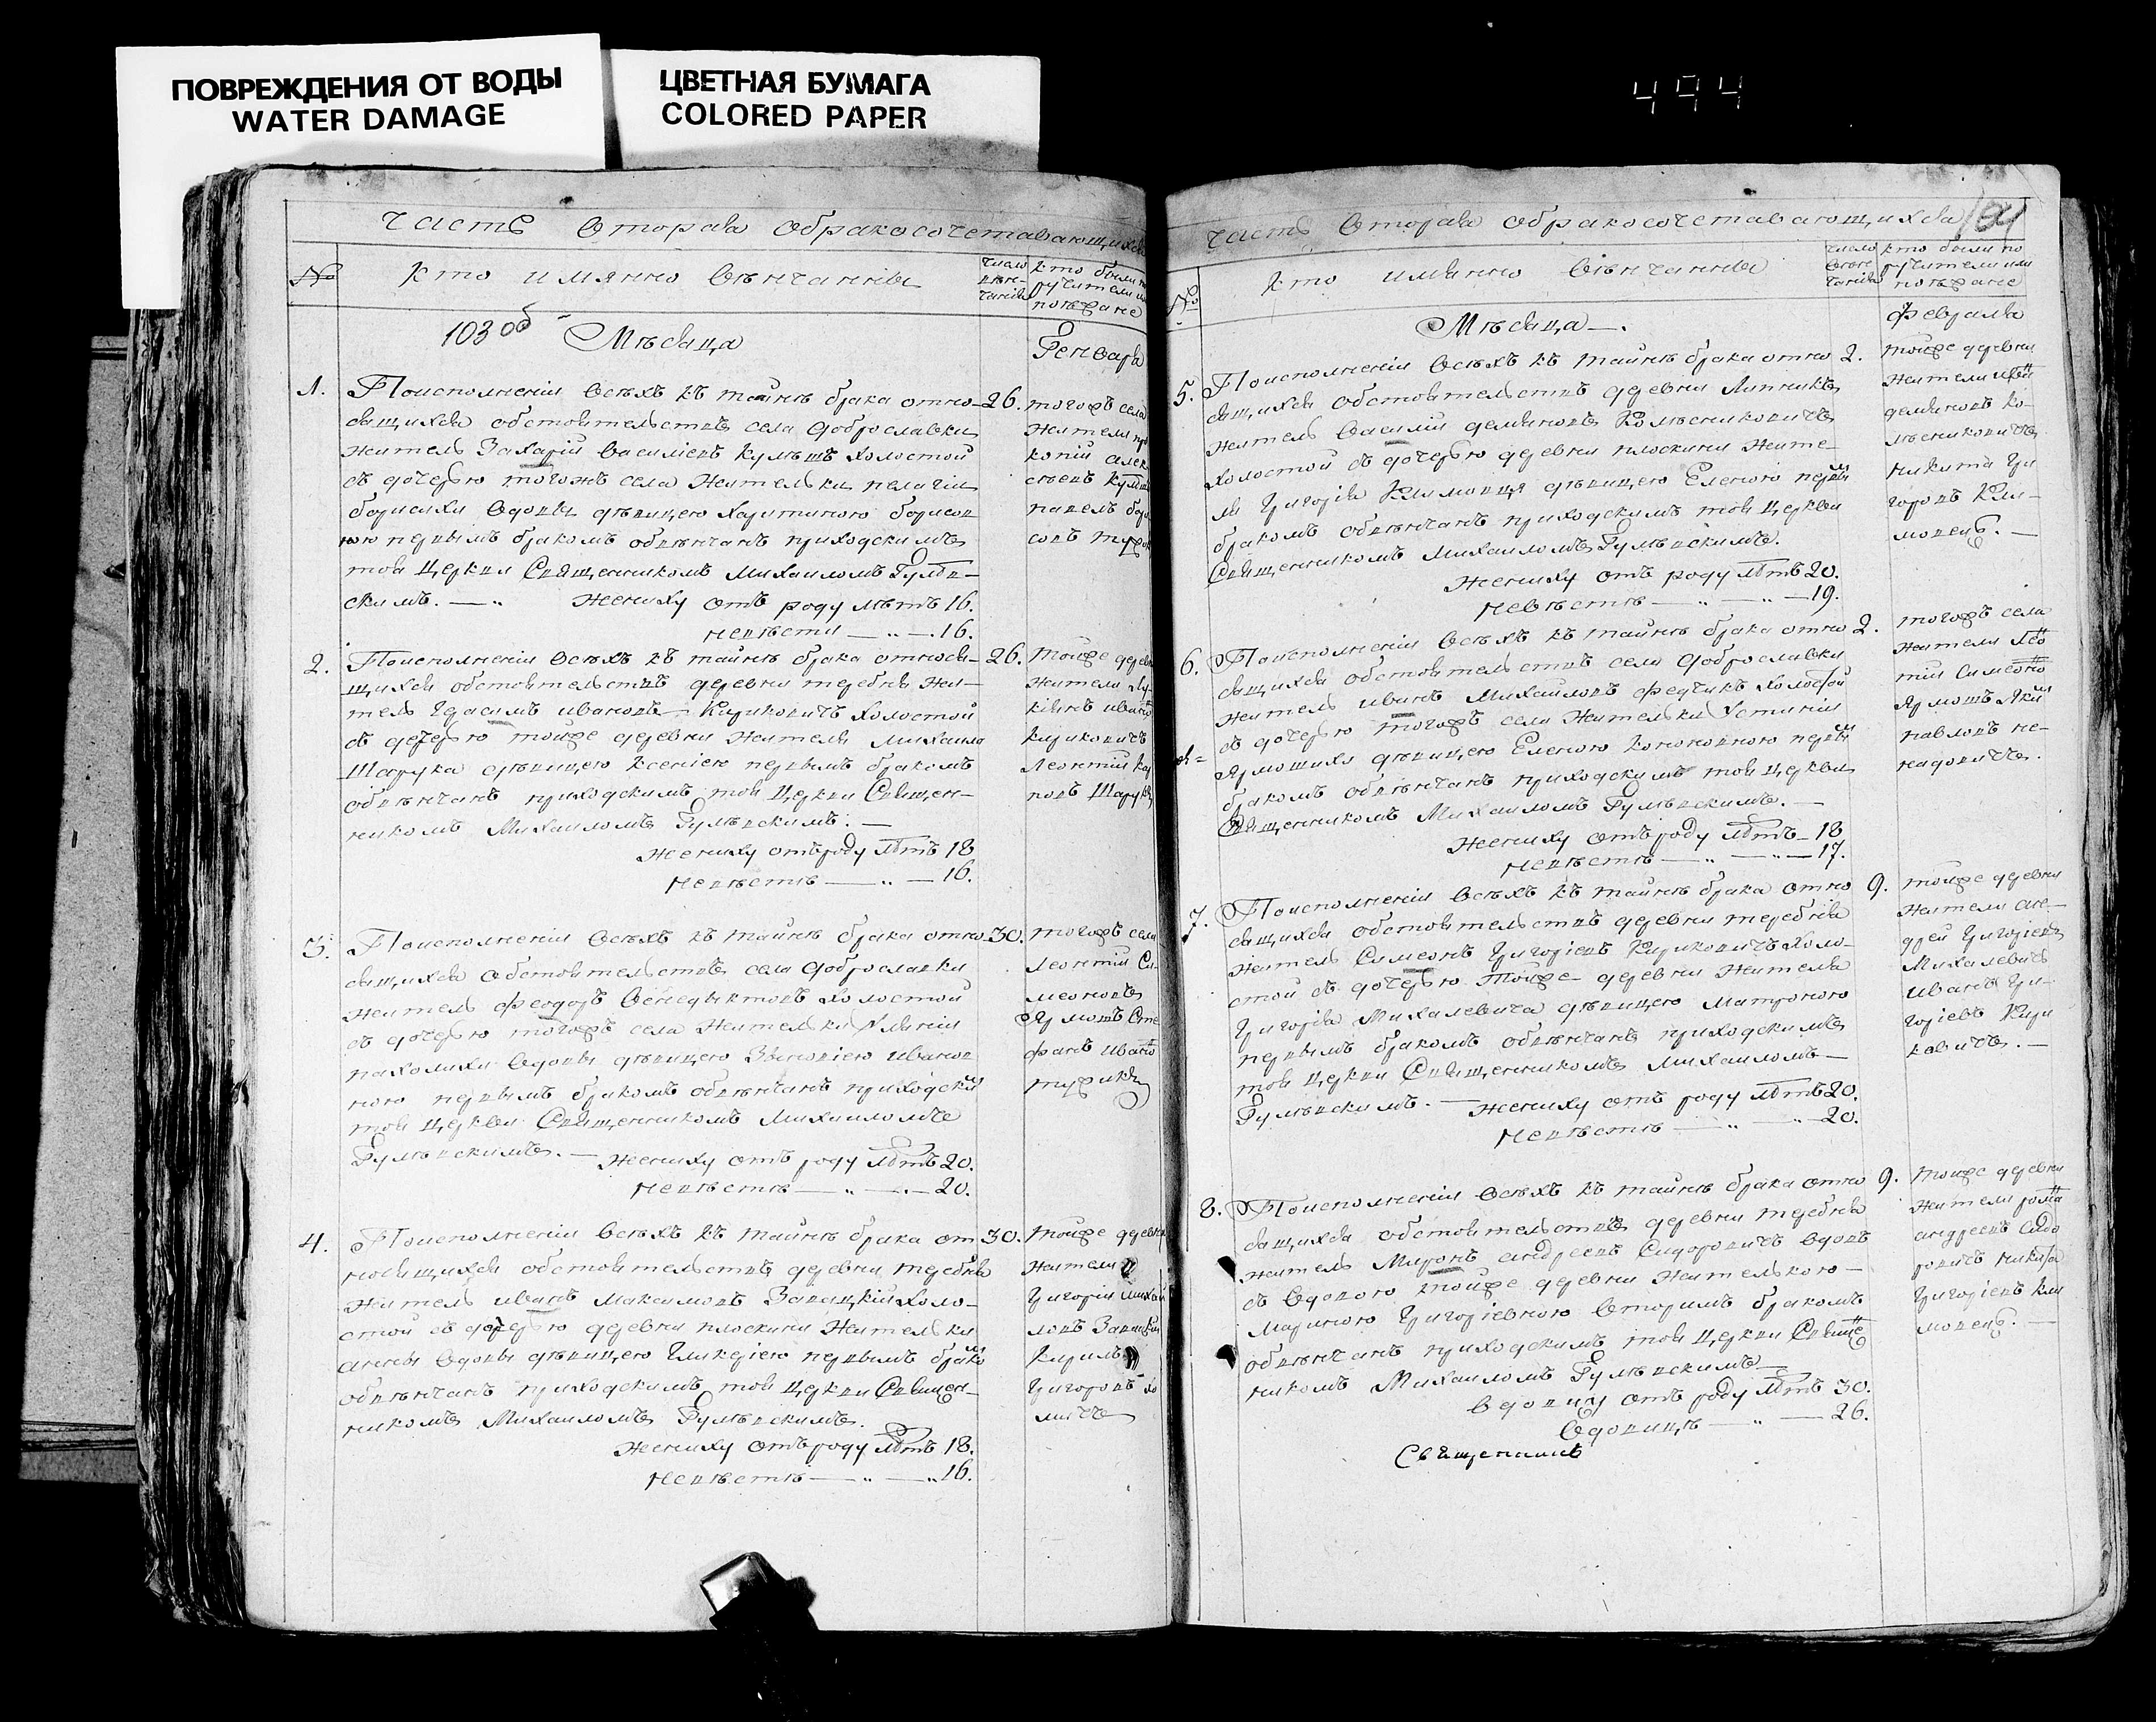 ПОВРЕЖДЕНИЯ ОТ ВОДЫ
WATER DAMAGE
ЦВЕТНАЯ БУМАГА
COLORED PAPER
494
Часть Вторая обракосочетавающихся
№
Кто имянно Вѣнчанніи
число вѣнчанія
Кто были поручители или поѣзжане
103 об
Мѣсяца
Генваря
1.
Поисполненіи Всѣхъ къ тайнѣ брака отно-
сящихся обстоятельствъ села Доброславки
житель Захарій Василіевъ Кулѣшъ Холостой
съ дочерью тогожъ села жительки пелагіи
борисихи Вдовы дѣвицею Харитиною борисов
ною первымъ бракомъ обвѣнчанъ приходскимъ
тоя Церкви Священникомъ Михаиломъ Гулѣв-
скимъ. —
Жениху отъ роду лѣтъ 16.
невѣсти — 16.
26.
тогожъ села
жители
копій алек
павелъ бори
совъ
2.
Поисполненіи Всѣхъ къ тайнѣ брака относя-
щихся обстоятельствъ деревни теребня жи-
тель Герасимъ ивановъ Кириковичъ Холостой
съ дочерью тойже деревни жителя Михаила
Шарука дѣвицею Ксеніею первымъ бракомъ
обвѣнчанъ приходскимъ тоя Церкви Священ-
никомъ Михаиломъ Гулѣвскимъ. —
Жениху отъ роду лѣтъ 18
невѣстѣ — 16.
26.
тойже дерев
жители Лу-
кіянъ ивано
кириковичъ
Леонтій Кар
повъ Шарукъ
3.
Поисполненіи Всѣхъ къ тайнѣ брака отно
сящихся обстоятельствъ села Доброславки
житель феодоръ Венедыктовъ Холостой
съ дочерью тогожъ села жительки Уліяніи
пахолихи Вдовы дѣвицею Зѣновіею иванов
ною первымъ бракомъ обвѣнчанъ приходскимъ
тоя Церкви Священникомъ Михаиломъ
Гулѣвскимъ. — Жениху отъ роду лѣтъ 20.
невѣстѣ — 20.
30.
тогожъ села
Леонтій Си-
меоновъ
Ярмошъ Сте
фанъ ивано
турикъ
4.
Поисполненіи Всѣхъ къ тайнѣ брака от
носящихся обстоятельствъ деревни теребня
житель иванъ Максимовъ Завацкій Холо-
стой съ дочерью деревни плоскини жительки
анны Вдовы дѣвицею Гликеріею первымъ брако
обвѣнчанъ приходскимъ тоя Церкви Священ-
никомъ Михаиломъ Гулѣвскимъ.
Жениху отъ роду лѣтъ 18.
невѣстѣ — 16.
30.
тойже деревни
жители
Григорій михай
ловъ Завацкій
Кирилъ
Григоровъ хо
мичъ
Часть Вторая обракосочетавающихся
104
№
Кто имянно Вѣнчанніи
число вѣнчанія
Кто были поручители или поѣзжане
Мѣсяца —.
Февраля
5.
Поисполненіи Всѣхъ къ тайнѣ брака отно
сящихся обстоятельствъ деревни Липникъ
житель Василій демяновъ Колѣсниковичъ
Холостой съ дочерью деревни плоскини жите-
ля Григорія Климовця дѣвицею Еленою первы
бракомъ обвѣнчанъ приходскимъ тоя Церкви
Священникомъ Михаиломъ Гулѣвскимъ.
Жениху отъ роду лѣтъ 20.
невѣстѣ — 19.
2.
тойже деревни
жители
демяновъ Ко-
лѣсниковичъ
никита Гри
горовъ Кли-
мовецъ. —
6.
Поисполненіи Всѣхъ къ тайнѣ брака отно
сящихся обстоятельствъ села Доброславки
житель иванъ Михайловъ федчикъ Холостой
съ дочерью тогожъ села жительки Устиніи
Ярмошихи дѣвицею Еленою Кононовною первы
бракомъ обвѣнчанъ приходскимъ тоя Церкви
Священникомъ Михаиломъ Гулѣвскимъ. —
Жениху отъ роду лѣтъ 18
невѣстѣ — 17.
2.
тогожъ села
жители Лео
тій Симеоно
Ярмошъ Яки
павловъ не-
надовичъ.
7.
Поисполненіи Всѣхъ къ тайнѣ брака отно
сящихся обстоятельствъ деревни теребня
житель Симеонъ Григоріевъ Кириковичъ Холо-
стой съ дочерью тойже деревни жителя
Григорія Михалевича дѣвицею Матроною
первымъ бракомъ обвѣнчанъ приходскимъ
тоя Церкви Священникомъ Михаиломъ —
Гулѣвскимъ. — Жениху отъ роду лѣтъ 20.
невѣстѣ — 20.
9.
тойже деревни
жители ан-
дрей Григоріевъ
Михалевичъ
Иванъ Гри-
горіевъ Кири
ковичъ. —
8.
Поисполненіи Всѣхъ къ тайнѣ брака отно
сящихся обстоятельствъ деревни теребня
житель Миронъ андреевъ Сидоровичъ Вдовъ
съ Вдовою тойже деревни жителькою —
Мариною Григоріевною Вторимъ бракомъ
обвѣнчанъ приходскимъ тоя Церкви Свяще
никомъ Михаиломъ Гулѣвскимъ —
Вдовцу отъ роду лѣтъ 30.
Вдовицѣ — 26.
9.
тойже деревни
жители рома
андреевъ Сидо
ровичъ никита
Григоріевъ Кли
мовецъ. —
Священникъ